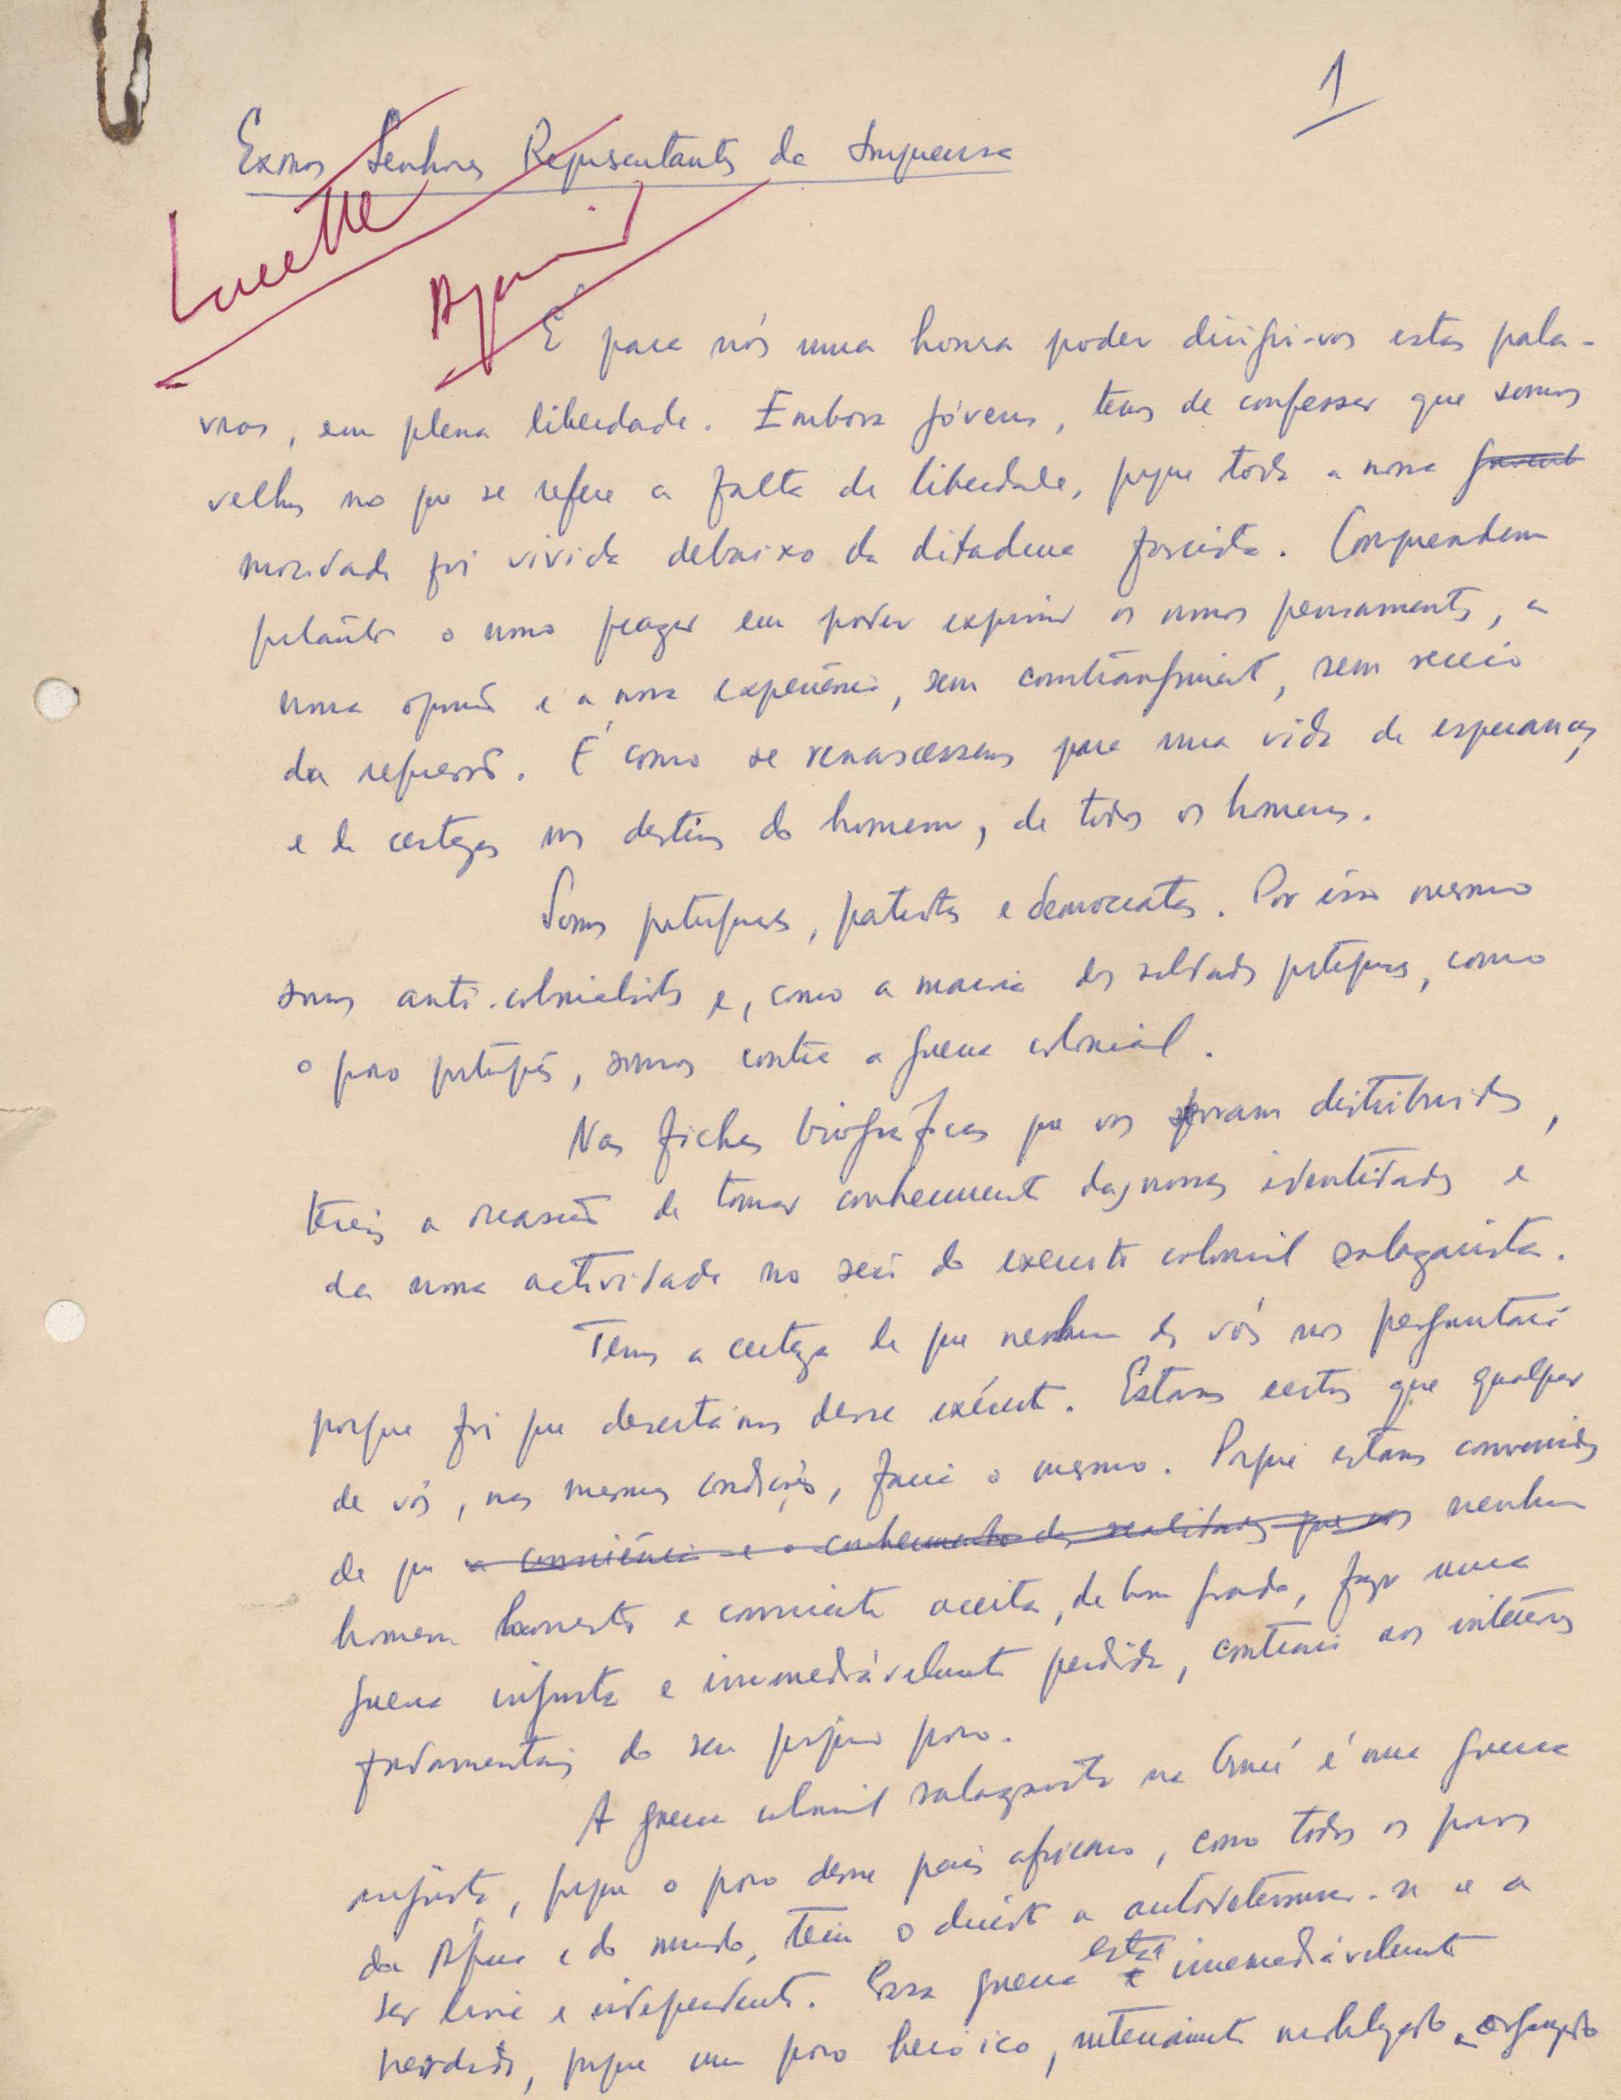 1
Exmos Senhores Representantes da Imprensa
Lucette
É para nós uma honra poder dirigir-vos estas pala-
vras, em plena liberdade. Embora jóvens, temos de confessar que somos
velhos no que se refere a falta de liberdade, porque toda a nossa juvent
mocidade foi vivida debaixo da ditadura fascista. Compreendem
portanto o nosso prazer em poder exprimir os nossos pensamentos, a
nossa opinião e a nossa experiência, sem constrangimento, sem receio
da repressão. É como se renascessemos para uma vida de esperanças
e de certezas nos destinos do homem, de todos os homens.
Somos portugueses, patriotas e democratas. Por isso mesmo
somos anti-colonialistas e, como a maioria dos soldados portugueses, como
o povo português, somos contra a guerra colonial.
Nas fichas biográficas que vos foram distribuidas,
tereis a ocasião de tomar conhecimento das nossas identidades e
da nossa actividade no seio do exercito colonial salazarista.
Temos a certeza de que nenhum de vós nos perguntará
porque foi que desertámos desse exército. Estamos certos que qualquer
de vós, nas mesmas condições, faria o mesmo. Porque estamos convencidos
de que a consciência e o conhecimento das realidades que nos nenhum
homem honesto e consciente aceita, de bom grado, fazer uma
guerra injusta e irremediávelmente perdida, contrária aos interesses
fundamentais do seu próprio povo.
A guerra colonial salazarista na Guiné é uma guerra
injusta, porque o povo desse país africano, como todos os povos
da África e do mundo, tem o direito a autodeterminar-se e a
ser livre e independente. Essa guerra está irremediávelmente
perdida, porque um povo heróico, inteiramente mobilizado e organizado